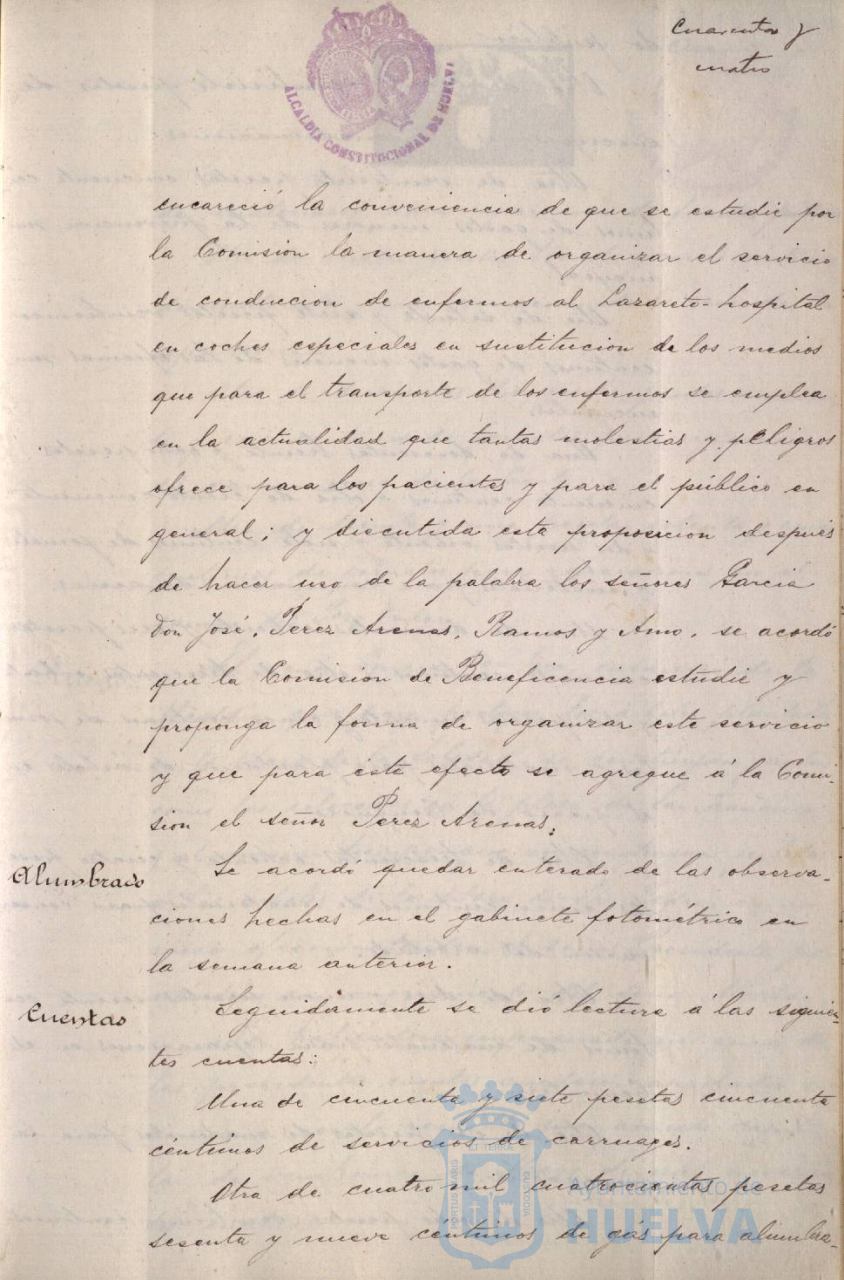 Cuarenta y
cuatro
ALCALDIA CONSTITUCIONAL DE HUELVA
encareció la conveniencia de que se estudie por
la Comision la manera de organizar el servicio
de conduccion de enfermos al Lazareto-hospital
en coches especiales en sustitucion de los medios
que para el transporte de los enfermos se emplea
en la actualidad que tantas molestias y peligros
ofrece para los pacientes y para el público en
general; y discutida esta proposicion después
de hacer uso de la palabra los señores Garcia
Don José, Perez Arenas, Ramos y Amo, se acordó
que la Comision de Beneficencia estudie y
proponga la forma de organizar este servicio
y que para éste efecto se agregue á la Comi-
sion el señor Perez Arenas.
Alumbrado
Se acordó quedar enterado de las observa-
ciones hechas en el gabinete fotométrico en
la semana anterior.
Cuentas
Seguidamente se dió lectura á las siguien-
tes cuentas:
Una de cincuenta y siete pesetas cincuenta
céntimos de servicios de carruages.
Otra de cuatro mil cuatrocientas pesetas
sesenta y nueve céntimos de gás para alumbra-
Ayuntamiento de
HUELVA